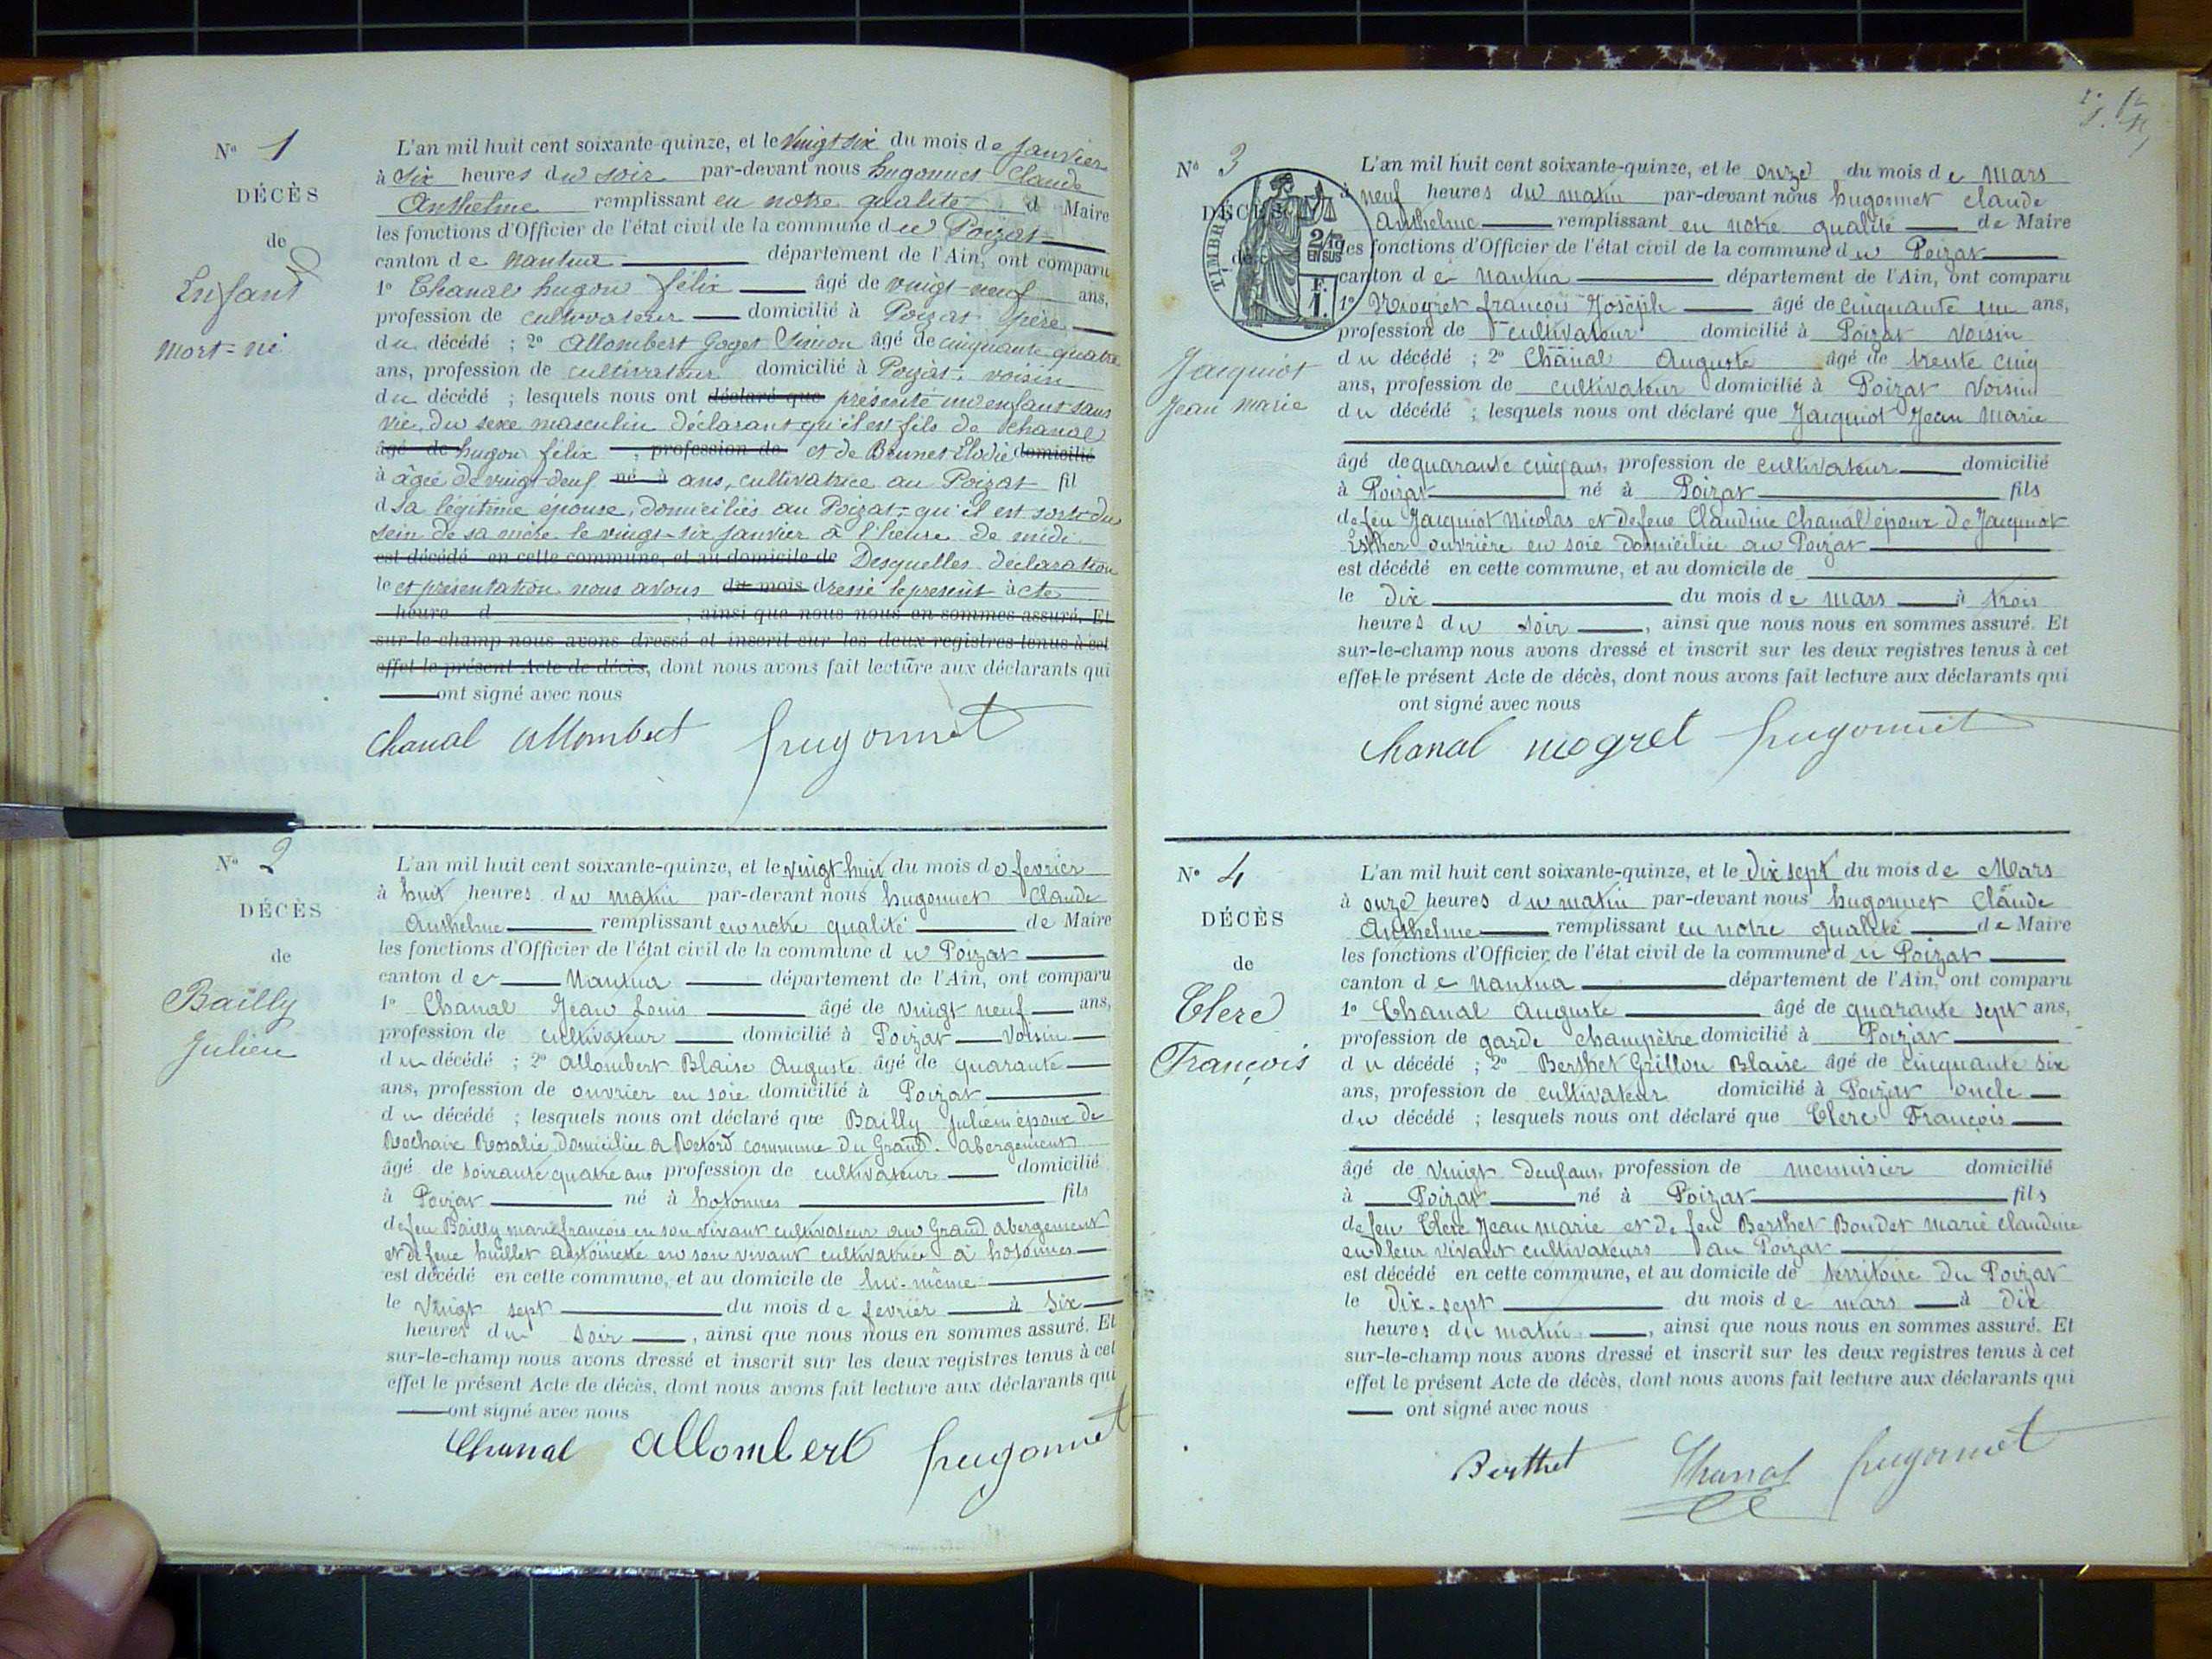 N° 1
DÉCÈS
de
Enfant
mort-né
L'an mil huit cent soixante-quinze, et le vingt six du mois de janvier
à six heures du soir par-devant nous hugonnet Claude
Anthelme remplissant en notre qualité d Maire
les fonctions d'Officier de l'état civil de la commune du Poizat
canton de nantua département de l'Ain, ont comparu
1° Chanal hugon félix âgé de vingt-neuf ans,
profession de cultivateur domicilié à Poizat père
du décédé ; 2° Allombert Goget Simon âgé de cinquante quatre
ans, profession de cultivateur domicilié à Poizat, voisin
du décédé ; lesquels nous ont déclaré que présenté un enfant sans
vie, du sexe masculin déclarant qu'il est fils de Chanal
âgé de hugon félix , profession de et de Brunet Elodie domicilié
à âgée de vingt-deuf né à ans, cultivatrice au Poizat fil
d sa légitime épouse, domiciliés au Poizat, qu'il est sorti du
sein de sa mère le vingt-six janvier à l'heure de midi
est décédé en cette commune, et au domicile de Desquelles déclaration
le et présentation nous avons du mois dressé le présent acte
heure d , ainsi que nous nous en sommes assuré. Et
sur-le-champ nous avons dressé et inscrit sur les deux registres tenus à cet
effet le présent Acte de décès, dont nous avons fait lecture aux déclarants qui
ont signé avec nous
Chanal allombert hugonnet
N° 2
DÉCÈS
de
Bailly
Julien
L'an mil huit cent soixante-quinze, et le vingt huit du mois de fevrier
à huit heures du matin par-devant nous hugonnet Claude
Anthelme remplissant en notre qualité de Maire
les fonctions d'Officier de l'état civil de la commune du Poizat
canton de Nantua département de l'Ain, ont comparu
1° Chanal Jean Louis âgé de vingt neuf ans,
profession de cultivateur domicilié à Poizat Voisin
du décédé ; 2° allombert Blaise Auguste âgé de quarante
ans, profession de ouvrier en soie domicilié à Poizat
du décédé ; lesquels nous ont déclaré que Bailly Julien époux de
Rochaix Rosalie domiciliée a Retord commune du Grand Abergement
âgé de soixante quatre ans profession de cultivateur domicilié
à Poizat né à hotonnes fils
de feu Bailly marie françois en son vivant cultivateur au Grand abergement
et de feue huillet antoinette en son vivant cultivatrice à hotonnes
est décédé en cette commune, et au domicile de lui-même
le vingt sept du mois de fevrier à Six
heures du soir , ainsi que nous nous en sommes assuré. Et
sur-le-champ nous avons dressé et inscrit sur les deux registres tenus à cet
effet le présent Acte de décès, dont nous avons fait lecture aux déclarants qui
ont signé avec nous
Chanal allombert hugonnet
N° 3
DÉCÈS
de
TIMBRE
2/10
EN SUS
F.
1.
Jacquiot
Jean marie
L'an mil huit cent soixante-quinze, et le onze du mois de mars
à neuf heures du matin par-devant nous hugonnet claude
Anthelme remplissant en notre qualité de Maire
les fonctions d'Officier de l'état civil de la commune du Poizat
canton de nantua département de l'Ain, ont comparu
1° Niogret françois Joseph âgé de cinquante un ans,
profession de cultivateur domicilié à Poizat voisin
du décédé ; 2° Chanal Auguste âgé de trente cinq
ans, profession de cultivateur domicilié à Poizat Voisin
du décédé ; lesquels nous ont déclaré que Jacquiot Jean Marie
âgé de quarante cinq ans, profession de cultivateur domicilié
à Poizat né à Poizat fils
de feu Jacquiot Nicolas et de feue Claudine Chanal époux de Jacquiot
Esther ouvrière en soie domiciliée au Poizat
est décédé en cette commune, et au domicile de
le dix du mois de mars à trois
heures du soir , ainsi que nous nous en sommes assuré. Et
sur-le-champ nous avons dressé et inscrit sur les deux registres tenus à cet
effet le présent Acte de décès, dont nous avons fait lecture aux déclarants qui
ont signé avec nous
Chanal niogret hugonnet
N° 4
DÉCÈS
de
Clerc
François
L'an mil huit cent soixante-quinze, et le dix sept du mois de Mars
à onze heures du matin par-devant nous hugonnet Claude
Anthelme remplissant en notre qualité de Maire
les fonctions d'Officier de l'état civil de la commune du Poizat
canton de nantua département de l'Ain, ont comparu
1° Chanal Auguste âgé de quarante sept ans,
profession de garde champêtre domicilié à Poizat
du décédé ; 2° Berthet Grillon Blaise âgé de cinquante six
ans, profession de cultivateur domicilié à Poizat oncle
du décédé ; lesquels nous ont déclaré que Clerc François
âgé de vingt deuf ans, profession de menuisier domicilié
à Poizat né à Poizat fils
de feu Clerc Jean marie et de feu Berthet Boudet marie claudine
en leur vivant cultivateurs au Poizat
est décédé en cette commune, et au domicile de territoire du Poizat
le dix-sept du mois de mars à dix
heures du matin , ainsi que nous nous en sommes assuré. Et
sur-le-champ nous avons dressé et inscrit sur les deux registres tenus à cet
effet le présent Acte de décès, dont nous avons fait lecture aux déclarants qui
ont signé avec nous
Berthet Chanal hugonnet